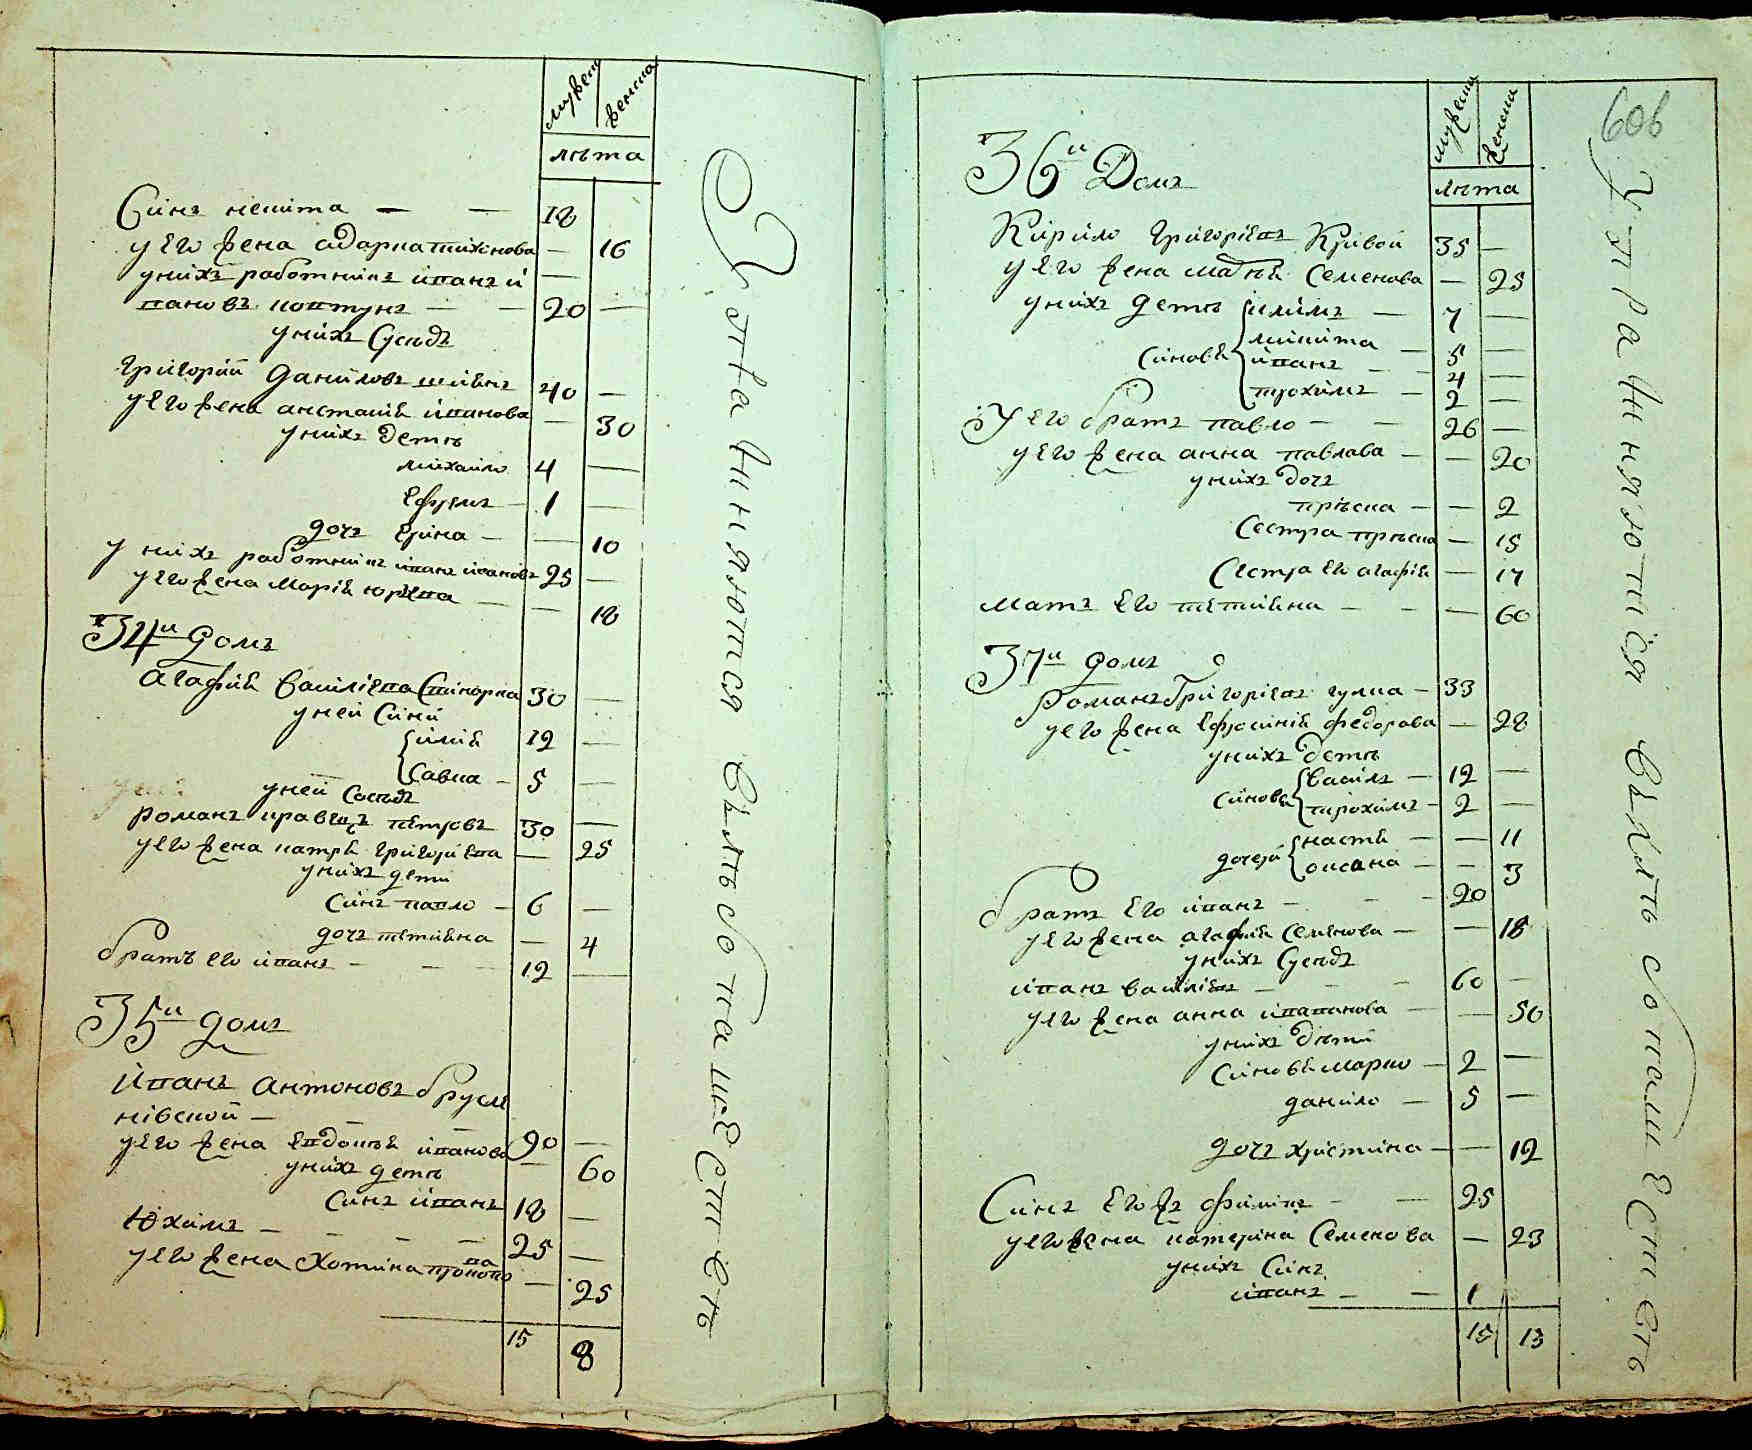 мужеш женша
лѣта
Синъ некита — — 18
у его жена одарка тихонова — 16
унихъ работникъ иванъ и —
вановъ коптунъ — — 20 —
унихъ Сусѣдъ
григорий данилов 40 —
у его жена анстасия иванова — 30
унихъ дети
михайло 4 —
Ефремъ — 1 —
дочъ Ерина — — 10
у нихъ работникъ иванъ ивановъ 25 —
у его жена Мария юрева — — 18
34й домъ
Агафия Василева 30 —
уней Сини
илия 12 —
Савка — 5 —
уней Сосѣдъ
романъ кравецъ петровъ 30 —
у его жена григорева — 25
унихъ дети
Синъ павло — 6 —
дочъ тетияна — 4
братъ его иванъ — — — 12 —
35й домъ
иванъ антоновъ бруси
нѣвской —
у его жена Евдокия иванова 90 —
унихъ дети — 60
Синъ иванъ 18 —
Юхимъ — — — — 25 —
у его жена Хотина прокопова — 25
15 8
Утва чиняюшся въ мѣсто намѣстнеть
606
мужеша женша
лѣта
36й Домъ
Кирило григориевъ Кривой 35 —
у его жена Семенова — 25
унихъ дети климъ — 7 —
микита — 5 —
Синовя иванъ — — 4 —
трохимъ — 2 —
У его братъ павло — — 26 —
у его жена анна павлава — — 20
унихъ дочъ
прѣска — — 2
Сестра прѣска — 15
Сестра его агафия — 17
матъ Его тетияна — — — 60
37й домъ
Романъ Григориевъ гулка — 33
у его жена Ефросиния федорова — 28
унихъ дети
Василь — 12 —
Синовя трохимъ — 2 —
настя — — 11
дочери оксана — — 3
братъ Его иванъ — — — 20
у его жена агафия Семенова — — 18
унихъ Сусѣдъ
иванъ василиевъ — — — 60 —
у его жена анна — — 50
унихъ дѣти
Синовя марко — 2 —
данило — 5 —
дочъ христина — — 12
Синъ Его жъ филипъ — — 25
у его жена катерина Семенова — 23
унихъ Синъ
иванъ — — 1
15 13